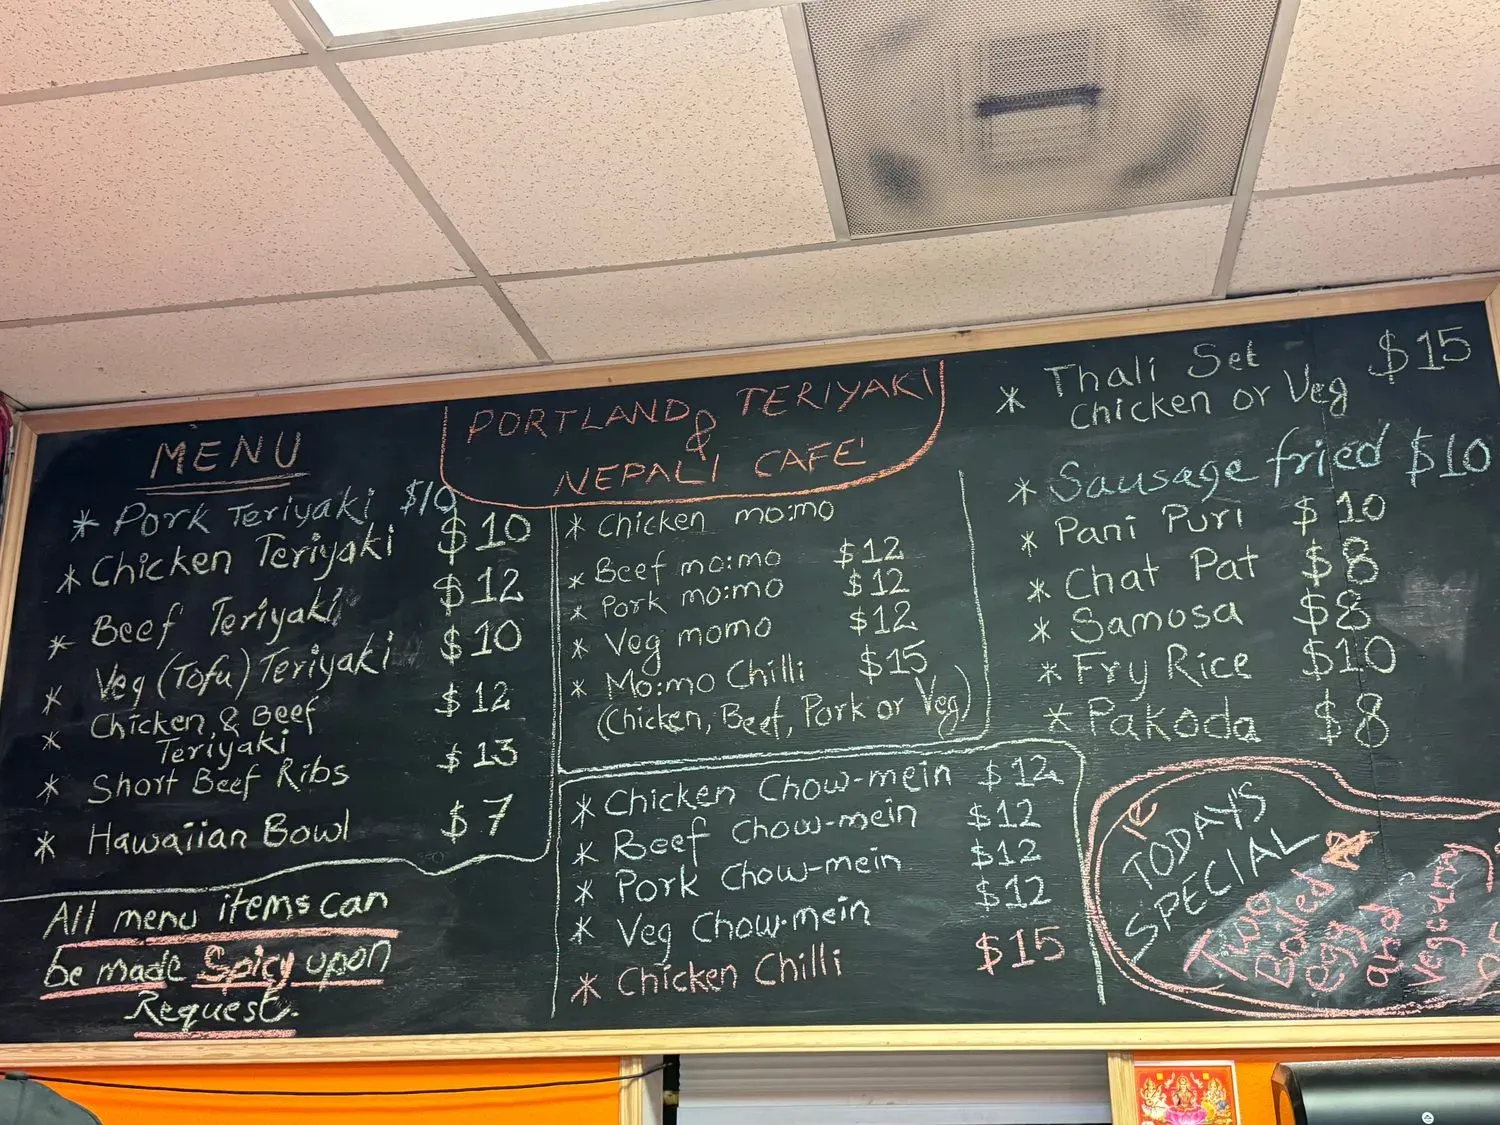 PORTLAND TERIYAKI
&
NEPALI CAFE'
MENU
* Pork Teriyaki $10
* Chicken Teriyaki $10
* Beef Teriyaki $12
* Veg (Tofu) Teriyaki $10
* Chicken & Beef $12
Teriyaki
* Short Beef Ribs $13
* Hawaiian Bowl $7
All menu items can
be made Spicy upon
Request.
* Chicken mo:mo
* Beef mo:mo $12
* Pork mo:mo $12
* Veg momo $12
* Mo:mo Chilli $15
(Chicken, Beef, Pork or Veg)
* Chicken Chow-mein $12
* Beef Chow-mein $12
* Pork Chow-mein $12
* Veg Chow-mein $12
* Chicken Chilli $15
* Thali Set $15
Chicken or Veg
* Sausage fried $10
* Pani Puri $10
* Chat Pat $8
* Samosa $8
* Fry Rice $10
* Pakoda $8
TODAY'S
SPECIAL
Two
Boiled
egg
and